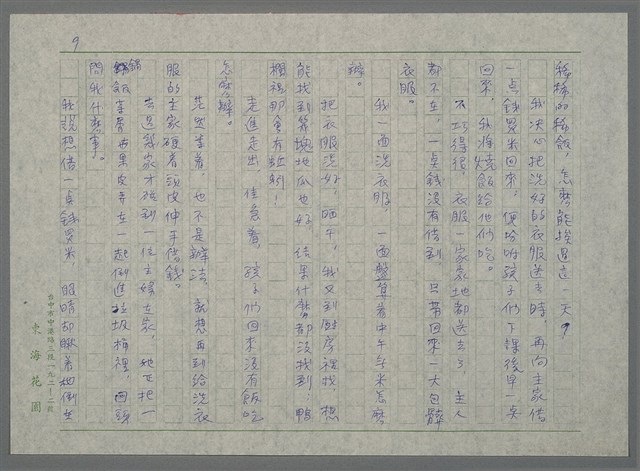 9
稀稀的稀飯，怎麼能挨過這一天？
我決心把洗好的衣服送去時，再向主家借
一點錢買米回來。便吩咐孩子們下課後早一矣
回來，我將燒飯給他們吃。
不巧得很，衣服一家家地都送去了，主人
都不在，一点錢沒有借到，只帶回來一大包髒
衣服。
我一面洗衣服，一面盤算着中午午米怎麼
辦。
把衣服洗好，晒干，我又到厨房裡找，想
能找到幾塊地瓜也好，結果什麼都沒找到！
那會有
走進走出，佳急着，孩子們回來沒有飯吃
怎麼辦。
光坐着，也不是辦法，就想再到給洗衣
服的主家硬着頭皮伸手借錢。
去過幾家才碰到一位主婦在家，她正把一
飯拿着与果皮弃在一起倒進垃圾桶裡，回頭
問我什麼事。
我說想借一点錢買米，眼睛却瞅着她倒在
台中市中港路三段一九二－二號
東海花園